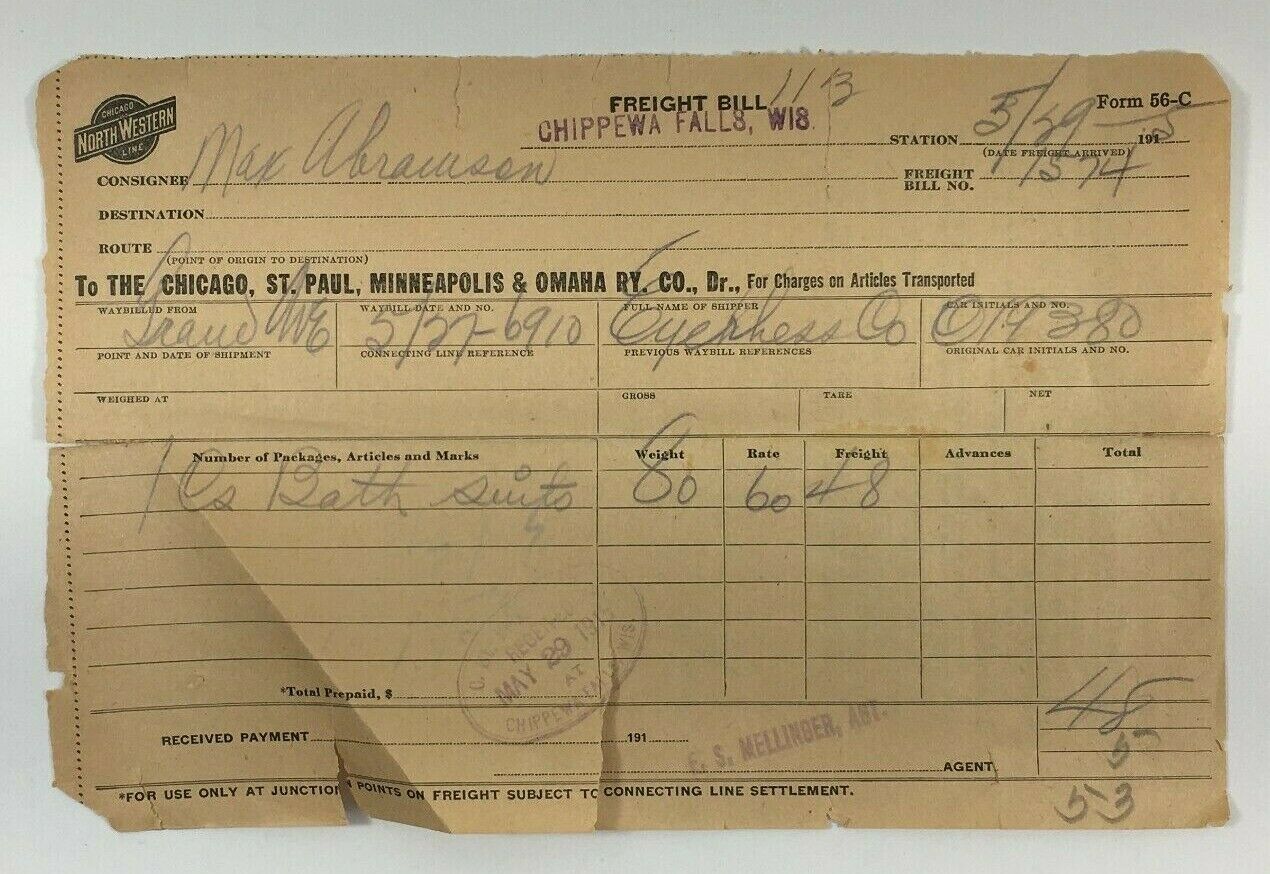 CHICAGO
NORTH WESTERN
LINE
FREIGHT BILL 113
CHIPPEWA FALLS, WIS.
Form 56-C
STATION 5/29 1915
(DATE FREIGHT ARRIVED)
CONSIGNEE Max Abramson
FREIGHT BILL NO. 1574
DESTINATION
ROUTE
(POINT OF ORIGIN TO DESTINATION)
To THE CHICAGO, ST. PAUL, MINNEAPOLIS & OMAHA RY. CO., Dr., For Charges on Articles Transported
WAYBILLED FROM WAYBILL DATE AND NO. FULL NAME OF SHIPPER CAR INITIALS AND NO.
Grand Ave 5/27-6910 Co 14380
POINT AND DATE OF SHIPMENT CONNECTING LINE REFERENCE PREVIOUS WAYBILL REFERENCES ORIGINAL CAR INITIALS AND NO.
WEIGHED AT GROSS TARE NET
Number of Packages, Articles and Marks Weight Rate Freight Advances Total
1 Cs Bath suits 80 60 48
RECEIVED
MAY 29 191
AT
CHIPPEWA FALLS WIS
*Total Prepaid, $
48
RECEIVED PAYMENT 191
E. S. MELLINGER, AGT.
5
AGENT
*FOR USE ONLY AT JUNCTION POINTS ON FREIGHT SUBJECT TO CONNECTING LINE SETTLEMENT.
53